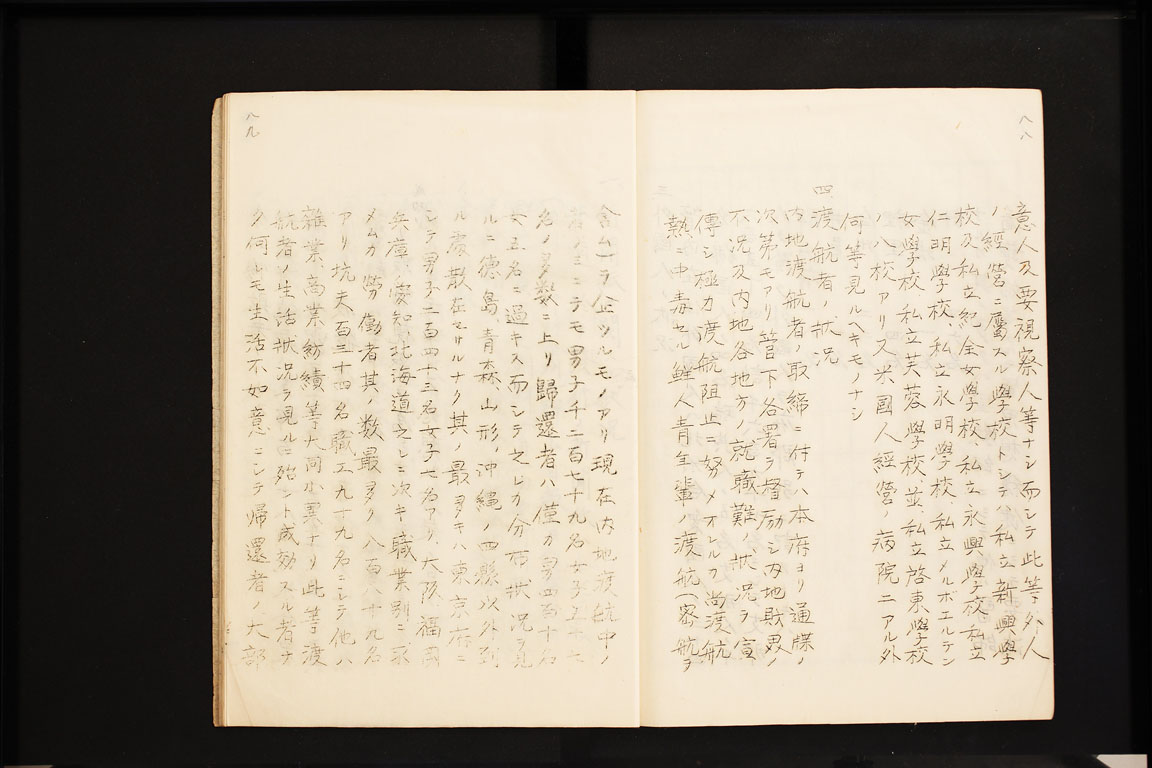 八八
意人及要視察人等ナシ而シテ此等外人
ノ經營ニ屬スル學校トシテハ私立新興學
校及私立紀全女學校、私立永興學校私立
仁明學校、私立永明學校私立メルボエルテン
女學校、私立芙蓉學校、並私立啓東學校
ノ八校アリ又米國人經營ノ病院ニアル外
何等見ルヘキモノナシ
四、渡航者ノ狀况
内地渡航者ノ取締ニ付テハ本府ヨリ通牒ノ
次第モアリ管下各署ヲ督励シ内地財界ノ
不况及内地各地方ノ就職難ノ狀况ヲ宣
傳シ極力渡航阻止ニ努メオレルヲ尚渡航
熱ニ中毒セル鮮人青年輩ノ渡航(密航ヲ
八九
含ム)ヲ企ツルモノアリ現在内地渡航中ノ
者ノミニテモ男子千二百七十九名女子
名ノ多數ニ上リ歸還者ハ僅カ男四百十名
女五名ニ過キス而シテ之レカ分布狀况ヲ見
ルニ德島、青森、山形、沖縄ノ四縣以外到
ル處散在セサルナク其ノ最多キハ東京府ニ
シテ男子二百四十三名女子七名アリ大阪、福岡
兵庫、愛知、北海道之レニ次キ職業別ニ
メムカ勞働者其ノ數最多ク八百八十九名
アリ坑夫百三十四名職工九十九名ニシテ他ハ
雜業、商業紡績等大同小異ナリ此等渡
航者ノ生活狀况ヲ見ルニ殆ント成効スル者ナ
ク何レモ生活不如意ニシテ帰還者ノ大部